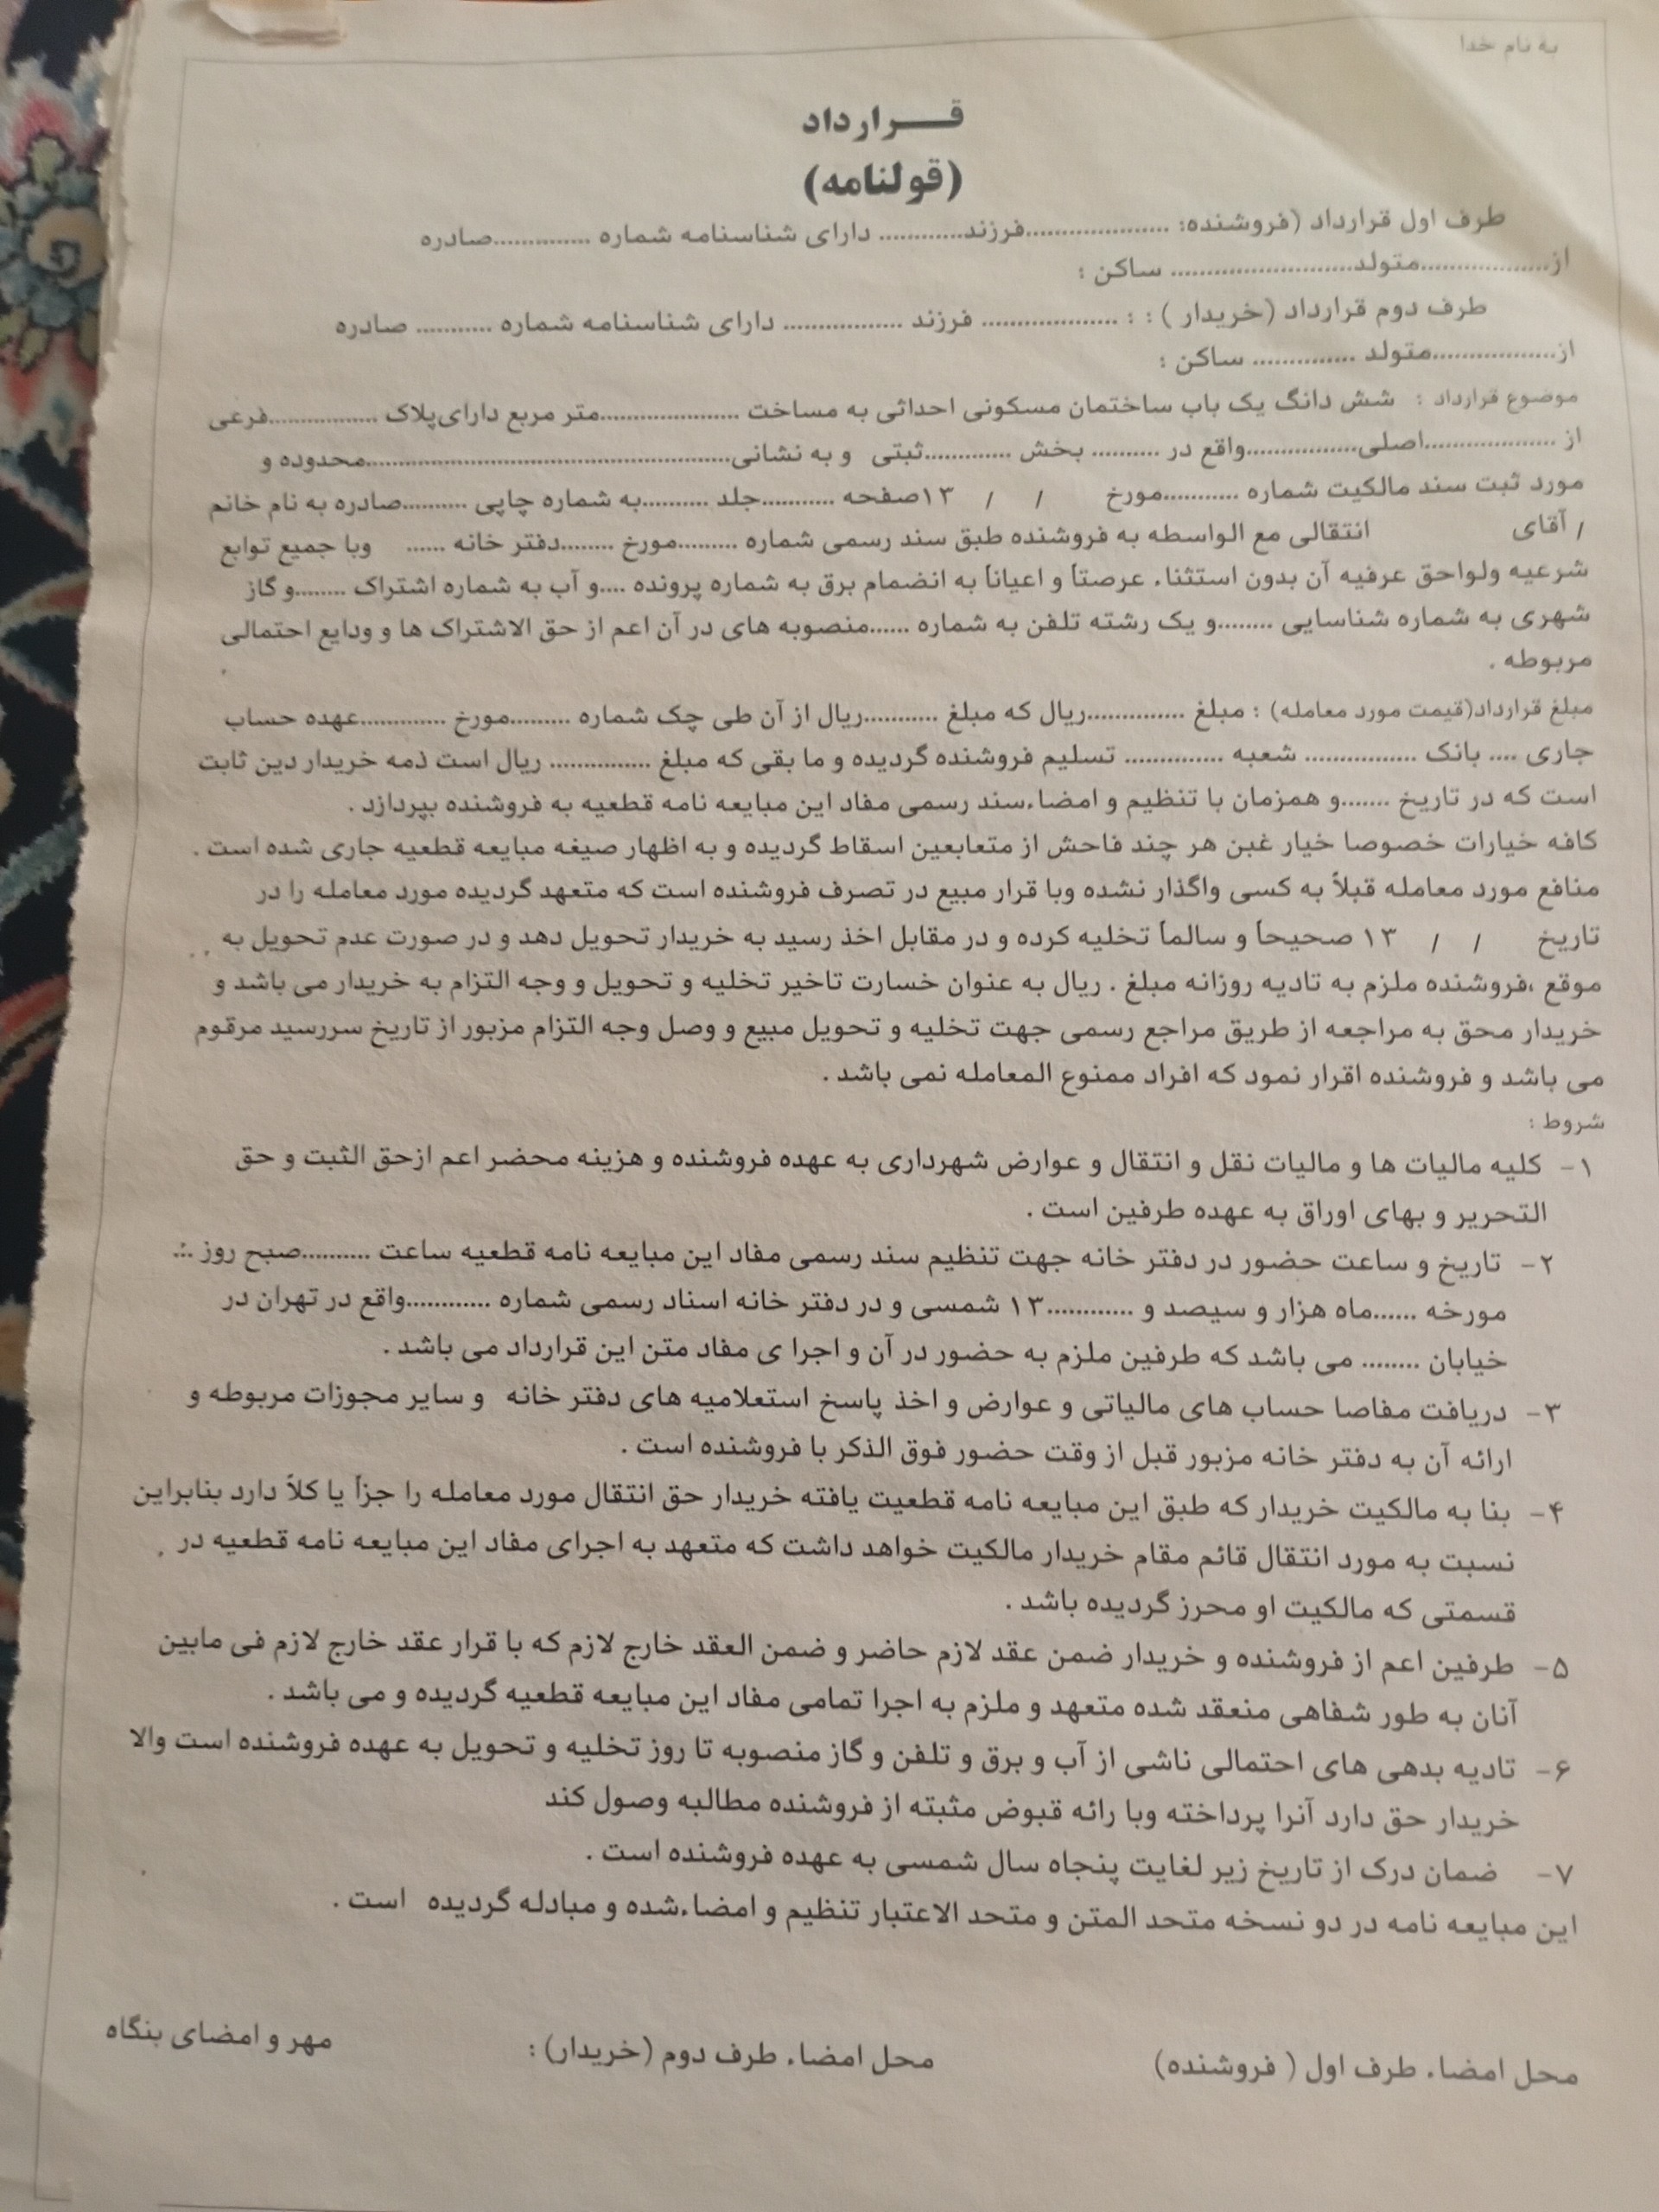 به نام خدا
قـــرارداد
(قولنامه)
طرف اول قرارداد (فروشنده: ....................فرزند............ دارای شناسنامه شماره ..............صادره
از..................متولد.......................... ساکن :
طرف دوم قرارداد (خریدار ) : : ................... فرزند ................. دارای شناسنامه شماره ........... صادره
از..................متولد .............. ساکن :
موضوع قرارداد : شش دانگ یک باب ساختمان مسکونی احداثی به مساخت ....................متر مربع دارای‌پلاک ................فرعی
از ...................اصلی................واقع در .......... بخش ............ثبتی و به نشانی....................................................محدوده و
مورد ثبت سند مالکیت شماره ...........مورخ / / ۱۳صفحه ..........جلد ..........به شماره چاپی ..........صادره به نام خانم
/ آقای انتقالی مع الواسطه به فروشنده طبق سند رسمی شماره .........مورخ ........دفتر خانه ...... وبا جمیع توابع
شرعیه ولواحق عرفیه آن بدون استثناء عرصتاً و اعیاناً به انضمام برق به شماره پرونده ....و آب به شماره اشتراک ........و گاز
شهری به شماره شناسایی ........و یک رشته تلفن به شماره ......منصوبه های در آن اعم از حق الاشتراک ها و ودایع احتمالی
مربوطه .
مبلغ قرارداد(قیمت مورد معامله) : مبلغ ..............ریال که مبلغ ...........ریال از آن طی چک شماره .........مورخ .............عهده حساب
جاری .... بانک ................ شعبه .............. تسلیم فروشنده گردیده و ما بقی که مبلغ ............... ریال است ذمه خریدار دین ثابت
است که در تاریخ .......و همزمان با تنظیم و امضاءسند رسمی مفاد این مبایعه نامه قطعیه به فروشنده بپردازد .
کافه خیارات خصوصا خیار غبن هر چند فاحش از متعابعین اسقاط گردیده و به اظهار صیغه مبایعه قطعیه جاری شده است .
منافع مورد معامله قبلاً به کسی واگذار نشده وبا قرار مبیع در تصرف فروشنده است که متعهد گردیده مورد معامله را در
تاریخ / / ۱۳ صحیحاً و سالماً تخلیه کرده و در مقابل اخذ رسید به خریدار تحویل دهد و در صورت عدم تحویل به
موقع ،فروشنده ملزم به تادیه روزانه مبلغ . ریال به عنوان خسارت تاخیر تخلیه و تحویل و وجه التزام به خریدار می باشد و
خریدار محق به مراجعه از طریق مراجع رسمی جهت تخلیه و تحویل مبیع و وصل وجه التزام مزبور از تاریخ سررسید مرقوم
می باشد و فروشنده اقرار نمود که افراد ممنوع المعامله نمی باشد .
شروط :
۱- کلیه مالیات ها و مالیات نقل و انتقال و عوارض شهرداری به عهده فروشنده و هزینه محضر اعم ازحق الثبت و حق
التحریر و بهای اوراق به عهده طرفین است .
۲- تاریخ و ساعت حضور در دفتر خانه جهت تنظیم سند رسمی مفاد این مبایعه نامه قطعیه ساعت ..........صبح روز ...
مورخه ......ماه هزار و سیصد و ............۱۳ شمسی و در دفتر خانه اسناد رسمی شماره ............واقع در تهران در
خیابان ........ می باشد که طرفین ملزم به حضور در آن و اجرا ی مفاد متن این قرارداد می باشد .
۳- دریافت مفاصا حساب های مالیاتی و عوارض و اخذ پاسخ استعلامیه های دفتر خانه و سایر مجوزات مربوطه و
ارائه آن به دفتر خانه مزبور قبل از وقت حضور فوق الذکر با فروشنده است .
۴- بنا به مالکیت خریدار که طبق این مبایعه نامه قطعیت یافته خریدار حق انتقال مورد معامله را جزاً یا کلاً دارد بنابراین
نسبت به مورد انتقال قائم مقام خریدار مالکیت خواهد داشت که متعهد به اجرای مفاد این مبایعه نامه قطعیه در
قسمتی که مالکیت او محرز گردیده باشد .
۵- طرفین اعم از فروشنده و خریدار ضمن عقد لازم حاضر و ضمن العقد خارج لازم که با قرار عقد خارج لازم فی مابین
آنان به طور شفاهی منعقد شده متعهد و ملزم به اجرا تمامی مفاد این مبایعه قطعیه گردیده و می باشد .
۶- تادیه بدهی های احتمالی ناشی از آب و برق و تلفن و گاز منصوبه تا روز تخلیه و تحویل به عهده فروشنده است والا
خریدار حق دارد آنرا پرداخته وبا رائه قبوض مثبته از فروشنده مطالبه وصول کند
۷- ضمان درک از تاریخ زیر لغایت پنجاه سال شمسی به عهده فروشنده است .
این مبایعه نامه در دو نسخه متحد المتن و متحد الاعتبار تنظیم و امضاءشده و مبادله گردیده است .
محل امضاء طرف اول ( فروشنده) محل امضاء طرف دوم (خریدار) : مهر و امضای بنگاه